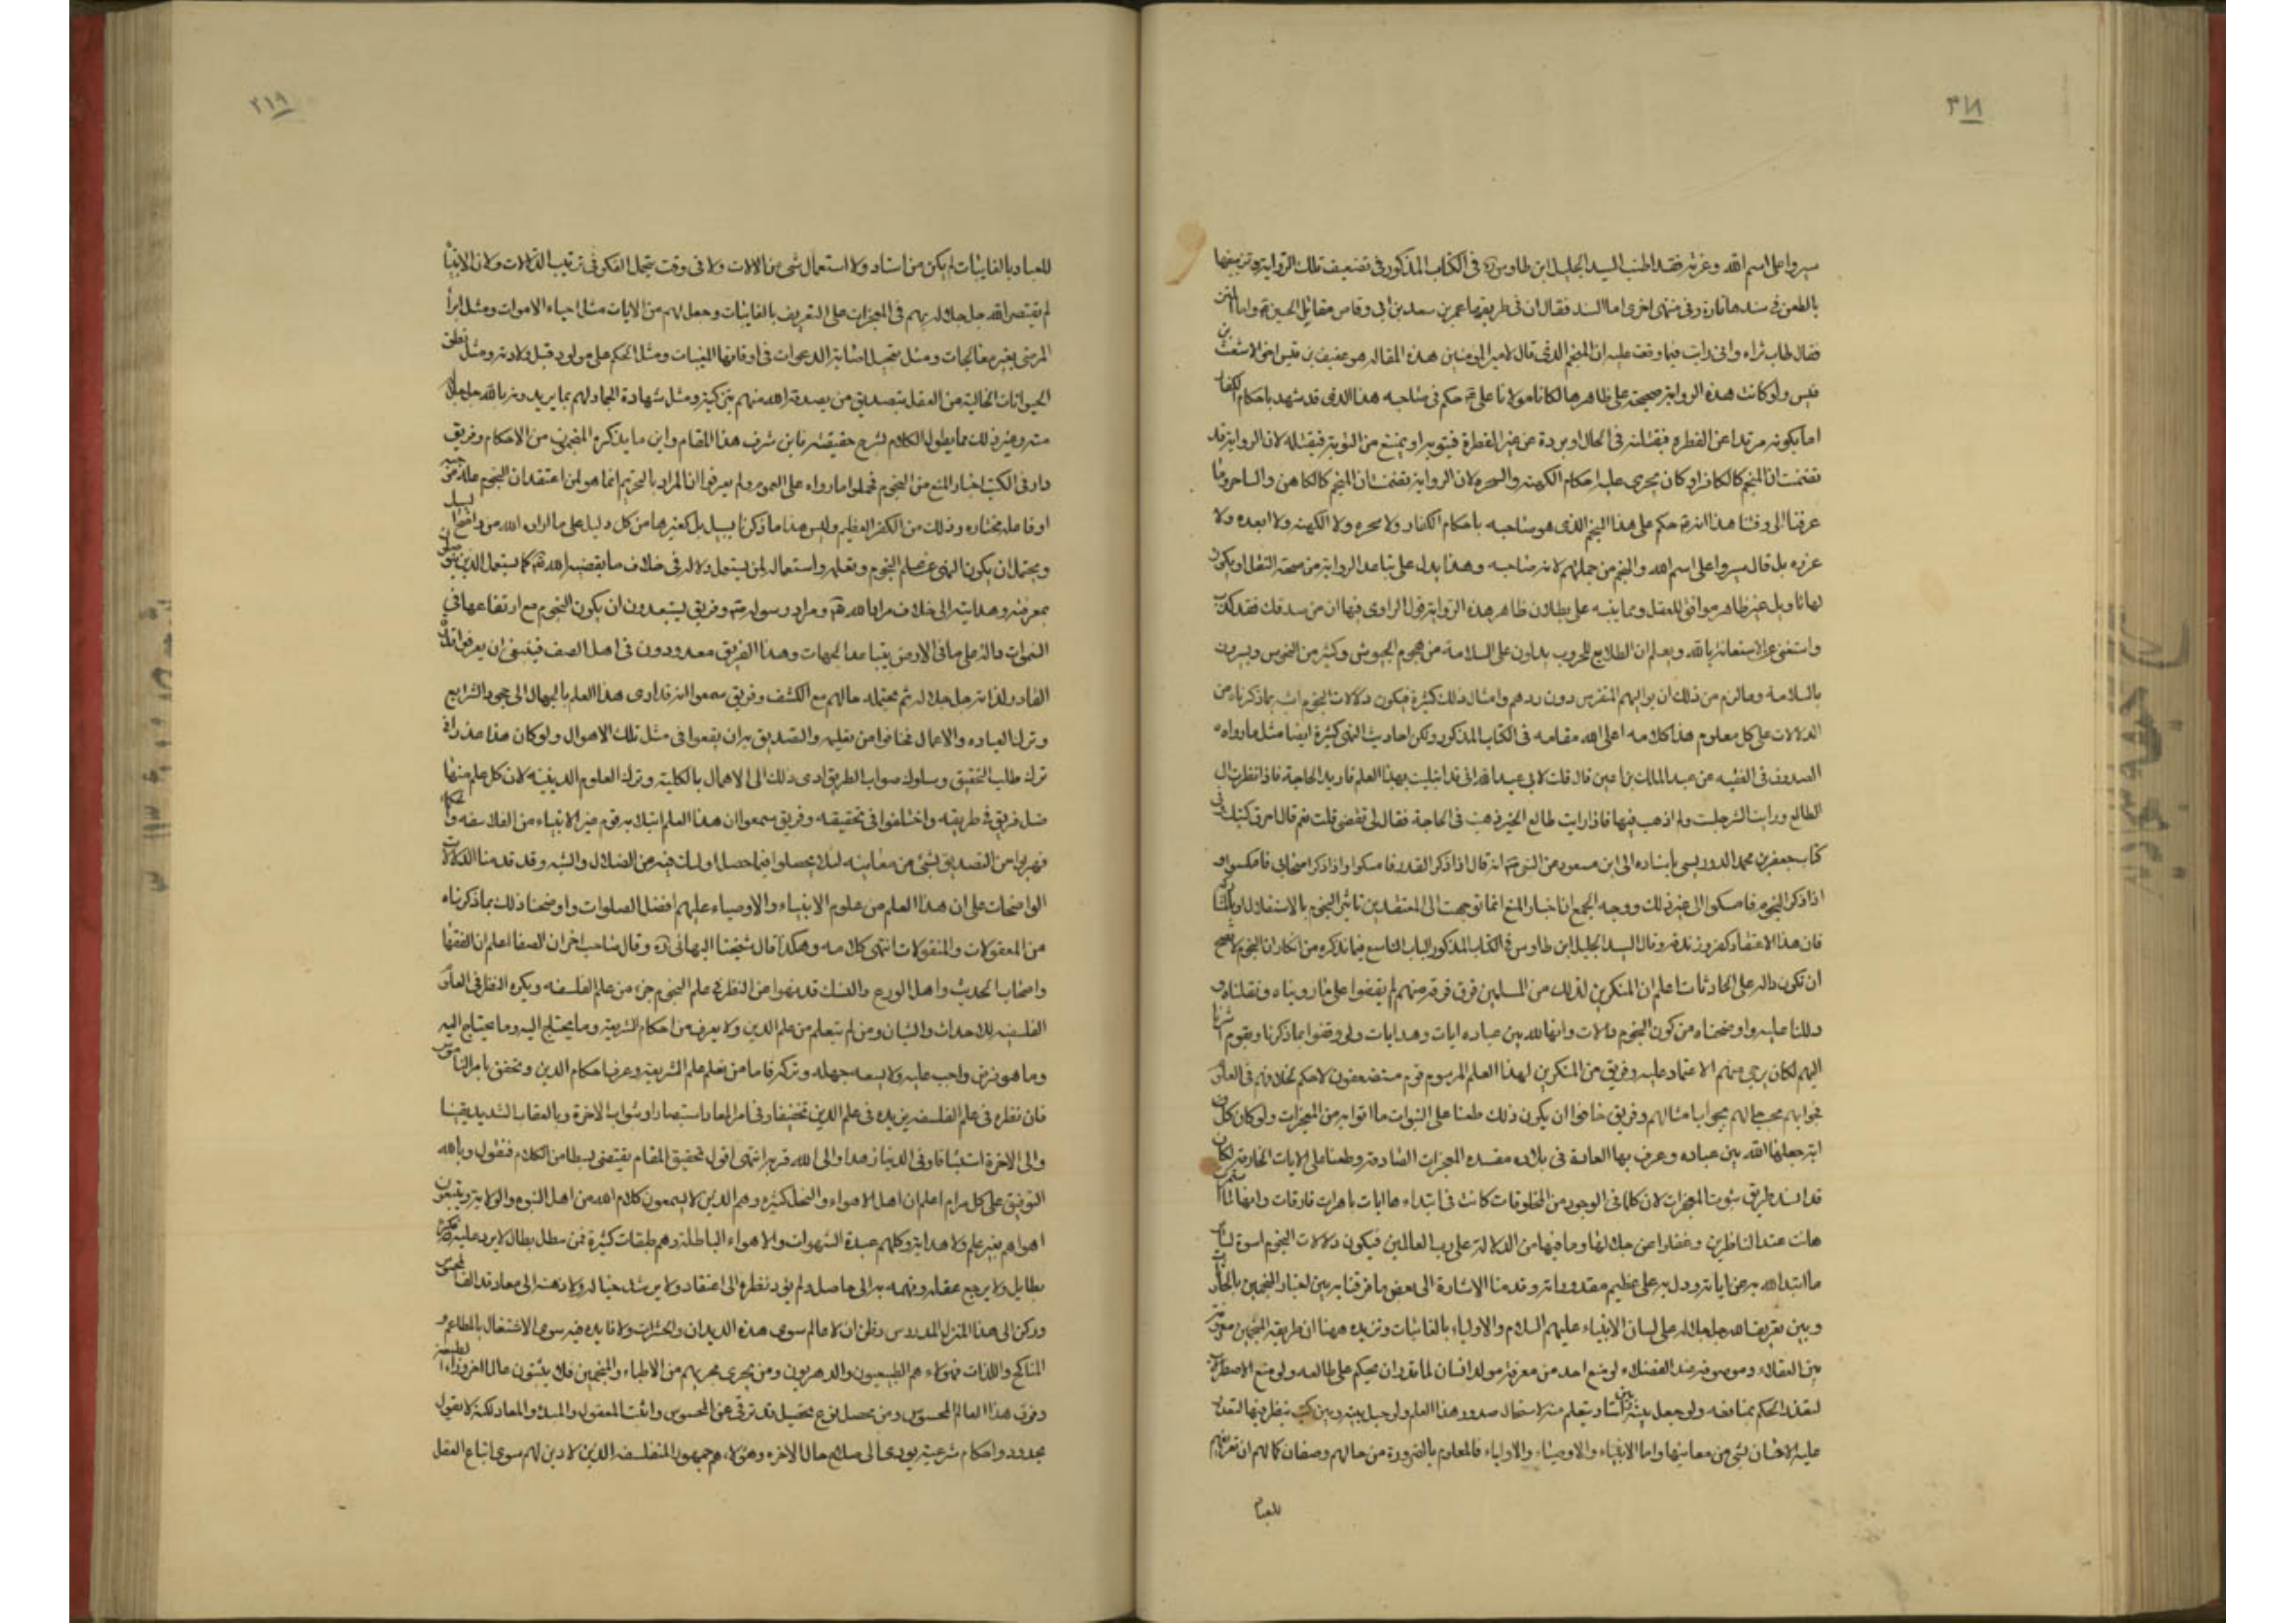 ٣١٨
سيروا على اسم الله وعونه فقد اطنب السيد الجليل ابن طاوس ره فى الكتاب المذكور فى تضعيف تلك الرواية وتزييفها
بالطعن فى سندها تارة وفى متنها اخرى اما السند فقال ان فى طريقها عمر بن سعد بن ابى وقاص مقاتل الحسين ع واما المتن
فقال طاب ثراه وانى رايت فيما وقفت عليه ان المنجم الذى قال لامير المومنين هذه المقاله هو عفيف بن قيس اخو الاشعث بن
قيس ولو كانت هذه الرواية صحيحة على ظاهرها لكان مولانا على ع حكم فى صاحبه هذا الذى قد شهد باحكام الكفار
اما بكونه مرتدا عن الفطره فيقتله فى الحال او بردة عن غير الفطرة فيتوبه او يمتنع من التوبة فيقتله لان الرواية قد
تضمنت ان المنجم كالكافر او كان يجرى عليه احكام الكهنه والسحره لان الرواية تضمنت ان المنجم كالكاهن والساحر وما
عرفنا الى وقتنا هذا انه ع حكم على هذا المنجم الذى هو صاحبه باحكام الكفار ولا سحره ولا الكهنه ولا ابعده ولا
عزره بل قال سيروا على اسم الله والمنجم من جملتهم لانه صاحبه وهذا يدل على تباعد الرواية من صحة النقل او يكون
لها تاويل غير ظاهر موافق للعقل ومما ينبه على بطلان ظاهر هذه الرواية قول الراوى فيها ان من صدقك فقد كذب
واستغنى عن الاستعانة بالله ويعلم ان الطلايع للحروب يدلون على السلامة من هجوم الجيوش وكثير من النحوس ويبشرون
بالسلامة وما لزم من ذلك ان يوليهم دون ربهم وامثال ذلك كثيرة فيكون دلالات النجوم بما ذكرناه من
الدلالات على كل معلوم هذا كلامه اعلى الله مقامه فى الكتاب المذكور ولكن احاديث النهى كثيرة ايضا مثل ما رواه
الصدوق فى الفقيه عن عبد الملك بن اعين قال قلت لابى عبد الله انى قد ابتليت بهذا العلم فاريد الحاجة فاذا نظرت الى
الطالع ورايت الشر جلست ولم اذهب فيها فاذا رايت طالع الخير ذهبت فى الحاجة فقال لى تقضى قلت نعم قال احرق كتبك وفى
كتاب جعفر بن محمد الدوريسى باسناده الى ابن مسعود عن النبى ص انه قال اذا ذكر القدر فامسكوا واذا ذكر اصحابى فامسكوا و
اذا ذكر النجوم فامسكوا الى غير ذلك ووجه الجمع ان اخبار المنع انما توجهت الى المعتقدين تاثير النجوم بالاستقلال او بالمشاركة
فان هذا الاعتقاد كفر وزندقة وقال السيد الجليل ابن طاوس فى الكتاب المذكور الباب التاسع فيما نذكره من انكار ان النجوم لا يصح
ان تكون داله على الحادثات اعلم ان المنكرين لذلك من المسلمين فرق فرقة منهم لم يقفوا على ما رويناه ونقلناه و
دللنا عليه واوضحناه من كون النجوم دلالات وانها لله بين عباده ايات وهدايات ولو وقفوا بما ذكرنا ويقوم اشرنا
اليهم لكان يرجى منهم الاعتماد عليه وفريق من المنكرين لهذا العلم المرسوم قوم مستضعفون لا حكم لخلافهم فى العلوم
بجوابهم امثالهم وفريق خافوا ان يكون ذلك طعنا على النبوات وما اتوا به من المعجزات ولو كان كل
اية جعلها الله بين عباده وعرف بها العادة فى بلاده مفسده المعجزات الصادقة وطعنا على الايات الخارقة لكان
قد انسد طريق ثبوت المعجزات لان كلما فى الوجود من المخلوقات كانت فى ابتداءها ايات باهرات خارقات وانها لما استمرت
هانت عند الناظرين وغفلوا عن جلالها وما فيها من الدلالة على رب العالمين فيكون دلالات النجوم اسوة لساير
ما ابتداه الله به من اياته ودل به على عظيم مقدوراته وقدمنا الاشارة الى بعض ما فرقنا به بين اخبار المنجمين بالحادثات
وبين تعريف الله جل جلاله على لسان الانبياء عليهم السلام والاولياء بالغائبات ونزيده ههنا ان طريقة المنجمين معروفة
بين العقلاء وموصوفه عند الفضلاء لو منع احد من معرفة مولد انسان لما قدر ان يحكم على طالعه ولو منع الاصطرلاب
لتعذر الحكم بمنافعه ولو جعل بينه وبين استاد يتعلم منه لاستحال صدور هذا العلم ولو حيل بينه وبين كتب ينظر فيها لتعذر
عليه الاخبار بشىء من معانيها واما الانبياء والاوصياء والاولياء فالمعلوم بالضرورة من حالهم وصفات كمالهم ان تعريفهم
للعباد
٣١٩
للعباد بالغايبات لم يكن من استاد ولا استعمال شىء من الالات ولا فى وقت يتحمل الفكر فى ترتيب الدلالات ولان الانبياء
لم يقتصر الله جل جلاله بهم فى المعجزات على التعريف بالغايبات وجعل لهم من الايات مثل احياء الاموات ومثل ابراء
المرضى بغير معالجات ومثل تعجيل اجابة الدعوات فى اوقاتها المعينات ومثل الحكم على مولود قبل ولادته ومثل نطق
الحيوانات الخالية من العقل بتصديق من يصدقه الله منهم ويزكيه ومثل شهادة الجماد لهم بما يريدونه بالله جل جلاله
منه وغير ذلك مما يطول الكلام بشرح حقيقته فاين شرف هذا المقام واين ما يذكره المنجمون من الاحكام وفريق
راو فى الكتب اخبار المنع من النجوم فحملوا ما رواه على العموم ولم يعرفوا ان المراد بالتحريم انما هو لمن اعتقد ان النجوم علة موجبه
او فاعله مختاره وذلك من الكفر العظيم وليس هذا ما ذكرنا بسبيل بل كغيرها من كل دليل على ما اراد الله من واضح السبيل
ويحتمل ان يكون النهى عن علم النجوم وتعلمه واستعماله لمن يستعمل دلاله فى خلاف ما يقتضيه الله تع كما يستعمل الذين يتوصلون
بمعرفته وهدايته الى خلاف مراد الله تع ومراد رسوله ص وفريق يستبعدون ان يكون النجوم مع ارتفاعها فى
السموات دالة على ما فى الارض بتباعد الجهات وهذا الفريق معدودون فى اهل الضعف فينبغى ان يعرفوا قدرة
القادر لذاته جل جلاله ثم يحتمله حالهم مع الكشف وفريق سمعوا انه قد ادى هذا العلم بالجهال الى جحود الشرايع
وترك العباده والاعمال فخافوا من تعليمه والتصديق به ان يقعوا فى مثل تلك الاهوال ولو كان هذا عذرا فى
ترك طلب التحقيق وسلوك صواب الطريق ادى ذلك الى الاهمال بالكلية وترك العلوم الدينية لان كل علم منها
ضل فريق فى طريقه واختلفوا فى تحقيقه وفريق سمعوا ان هذا العلم ابتلى به قوم غير الانبياء من الفلاسفه والحكماء
فهربوا من التصديق بشىء من معانيه لئلا يحصلوا فيما حصل اولئك فيه من الضلال والشبه وقد قدمنا الدلالات
الواضحات على ان هذا العلم من علوم الانبياء والاوصياء عليهم افضل الصلوات واوضحنا ذلك بما ذكرناه
من المعقولات والمنقولات انتهى كلامه وهكذا قال شيخنا البهائى ره وقال صاحب اخوان الصفا اعلم ان الفقهاء
واصحاب الحديث واهل الورع والنسك قد نهوا عن النظر فى علم النجوم جزء من علم الفلسفه ويكره النظر فى العلوم
الفلسفيه للاحداث والشبان ومن لم يتعلم من علم الدين ولا يعرف من احكام الشريعة وما يحتاج اليه وما يحتاج اليه
وما هو فرض واجب عليه ولا يسعه جهله وتركه فاما من تعلم علم الشريعة وعرف احكام الدين وتحقق بامر الناموس
فان نظره فى علم الفلسفه يزيده فى علم الدين تحقيقا وفى امر المعاد استبصارا وثواب الاخرة وبالعقاب الشديد يقينا
والى الاخرة اشتياقا وفى الدنيا زهدا والى الله قربة انتهى اقول تحقيق المقام يقتضى بسطا من الكلام فنقول وبالله
التوفيق على كل مرام اعلم ان اهل الاهواء والنحل كثيره وهم الذين لا يسمعون كلام الله من اهل النبوه والولاية ويتبعون
اهواهم بغير علم ولا هداية وكلهم عبدة الشهوات والاهواء الباطلة وهم طبقات كثيرة فمن معطل بطال لا يرد عليه فكره
بطايل ولا يرجع عقله وفهمه به الى حاصل ولم يؤد نظره الى اعتقاد ولا يرشد خياله ولا ذهنه الى معاد قد الف المحسوس
وركن الى هذا المنزل المدروس وظن ان لا عالم سوى هذه الديدان والحشرات ولا فايده فيه سوى الاشتغال بالمطاعم و
المناكح واللذات فهولاء هم الطبيعيون والدهريون ومن يجرى مجريهم من الاطباء والمنجمين فلا يثبتون عالما اخر وراء الطبيعة
وفوق هذا العالم المحسوس ومن محصل نوع تحصيل قد ترقى عن المحسوس واثبت المعقول والمبدا والمعاد لكنه لا يقول
بحدود واحكام شرعية يودى الى صلاح حال الاخره وهؤلاء هم جمهور المتفلسفه الذين لا دين لهم سوى اتباع العقل